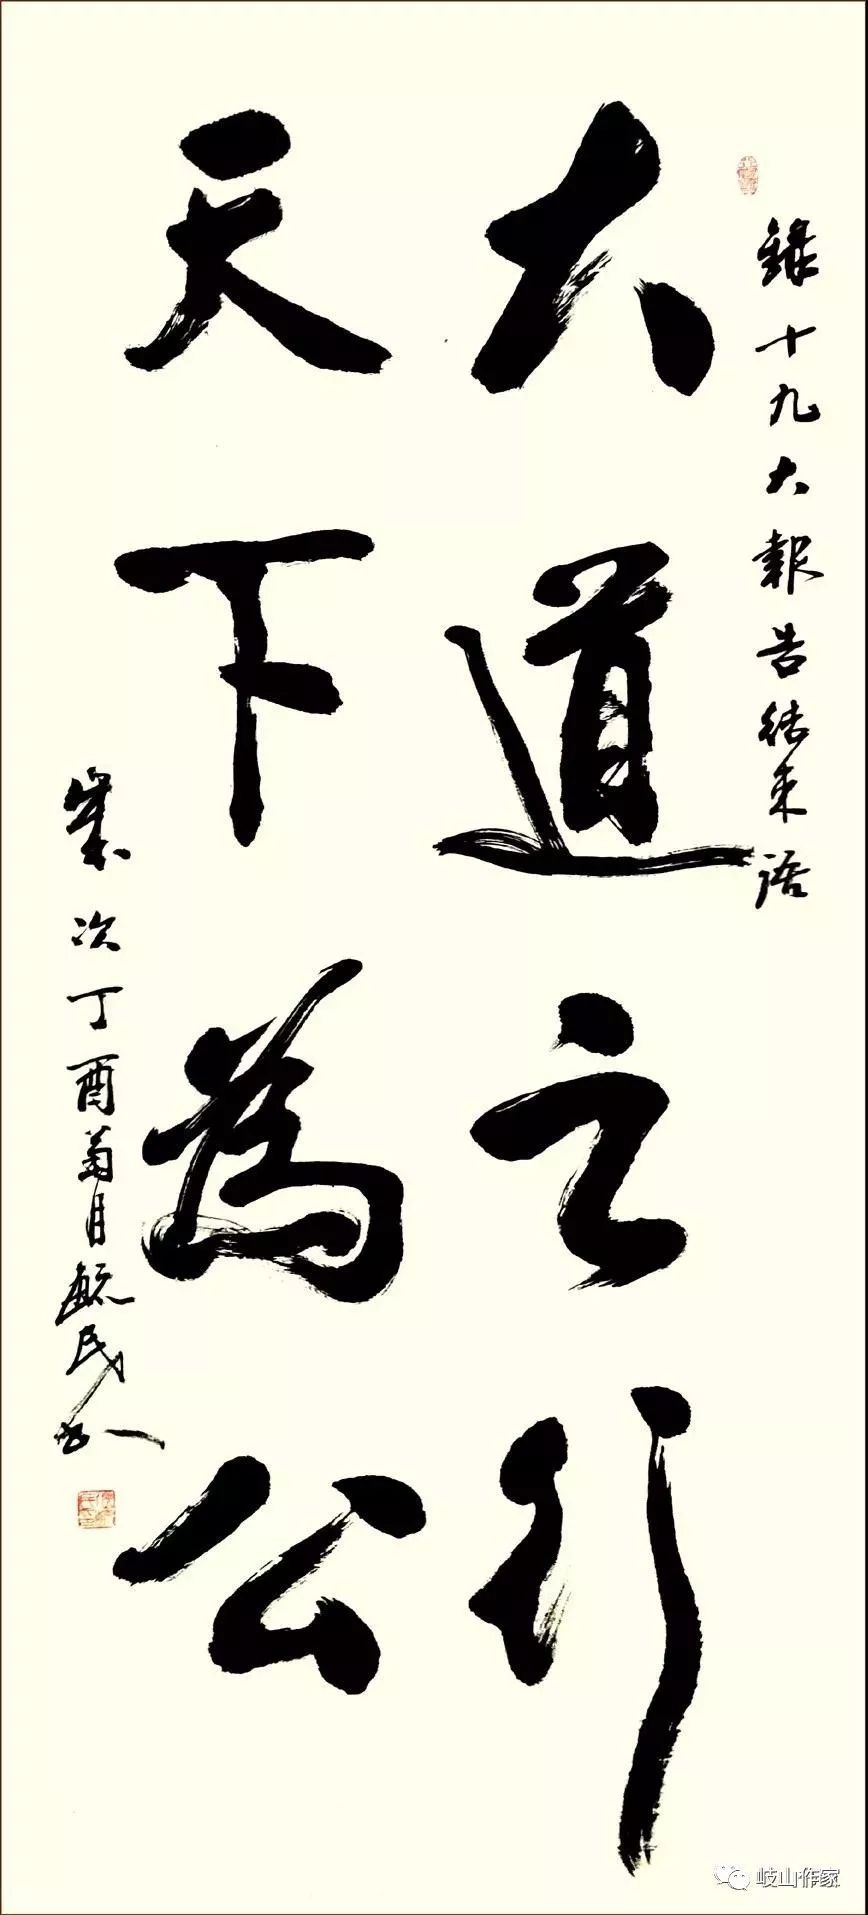 錄十九大報告結束語
大道之行
天下為公
歲次丁酉菊月毓民書
岐山作家